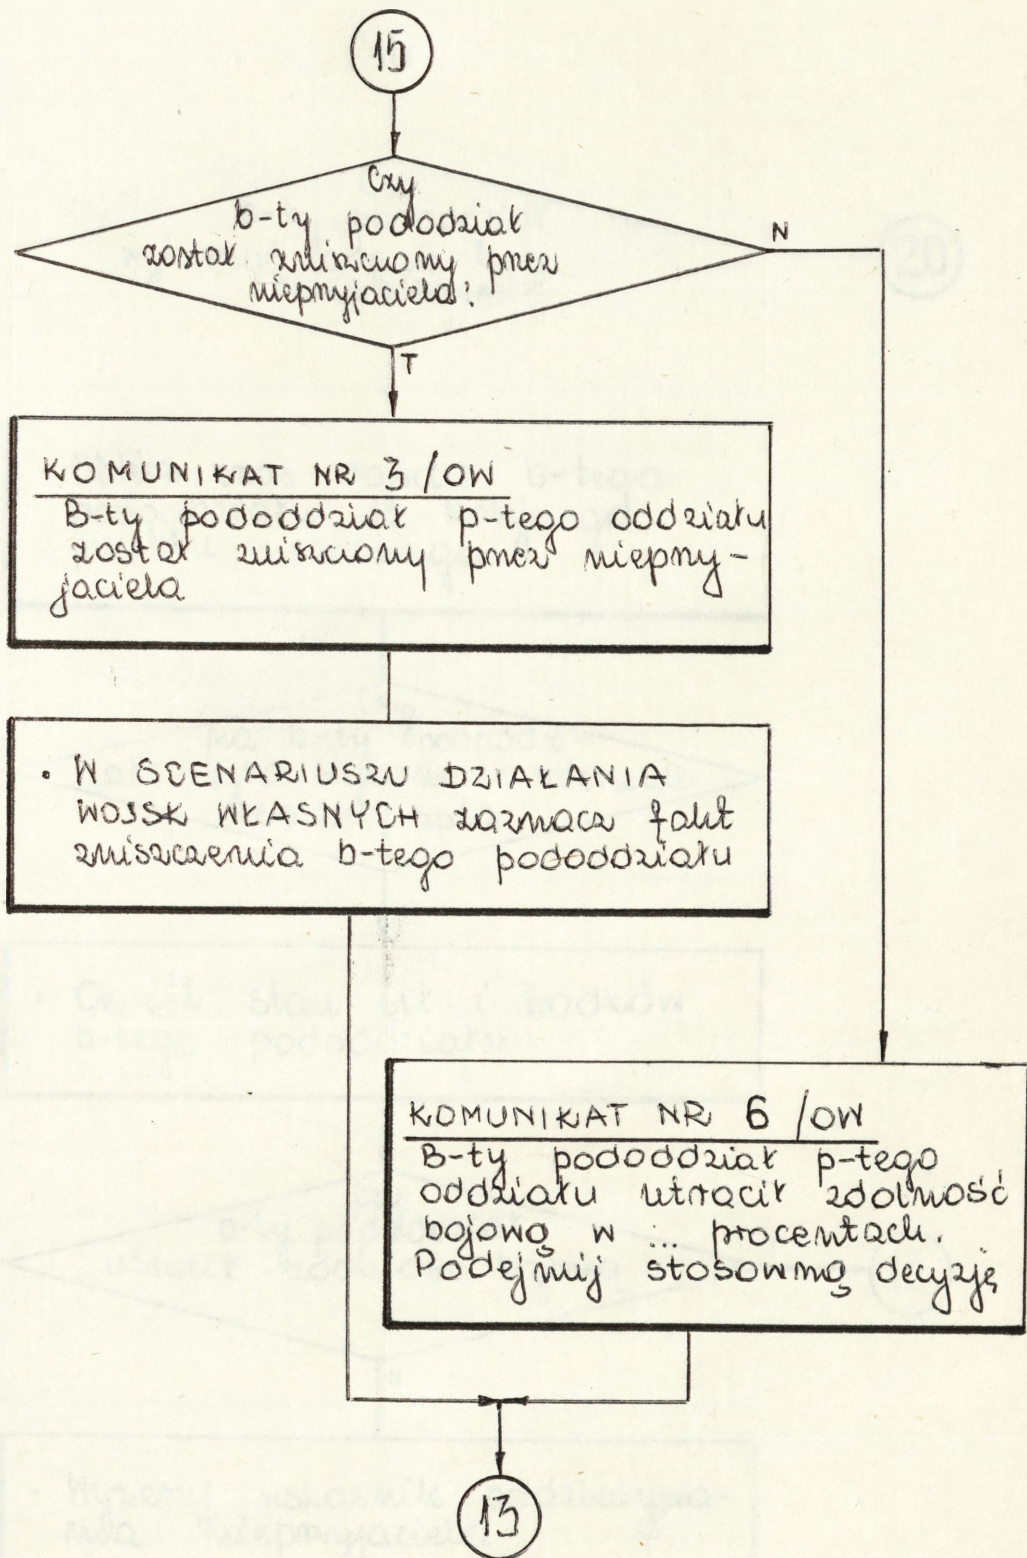 15
Czy
b-ty pododział
został zniszczony przez
nieprzyjaciela?
N
T
KOMUNIKAT NR 3 /OW
B-ty pododdział p-tego oddziału
został zniszczony przez nieprzy-
jaciela
• W SCENARIUSZU DZIAŁANIA
WOJSK WŁASNYCH zaznacz fakt
zniszczenia b-tego pododdziału
KOMUNIKAT NR 6 /OW
B-ty pododdział p-tego
oddziału utracił zdolność
bojową w ... procentach.
Podejmij stosowną decyzję
13